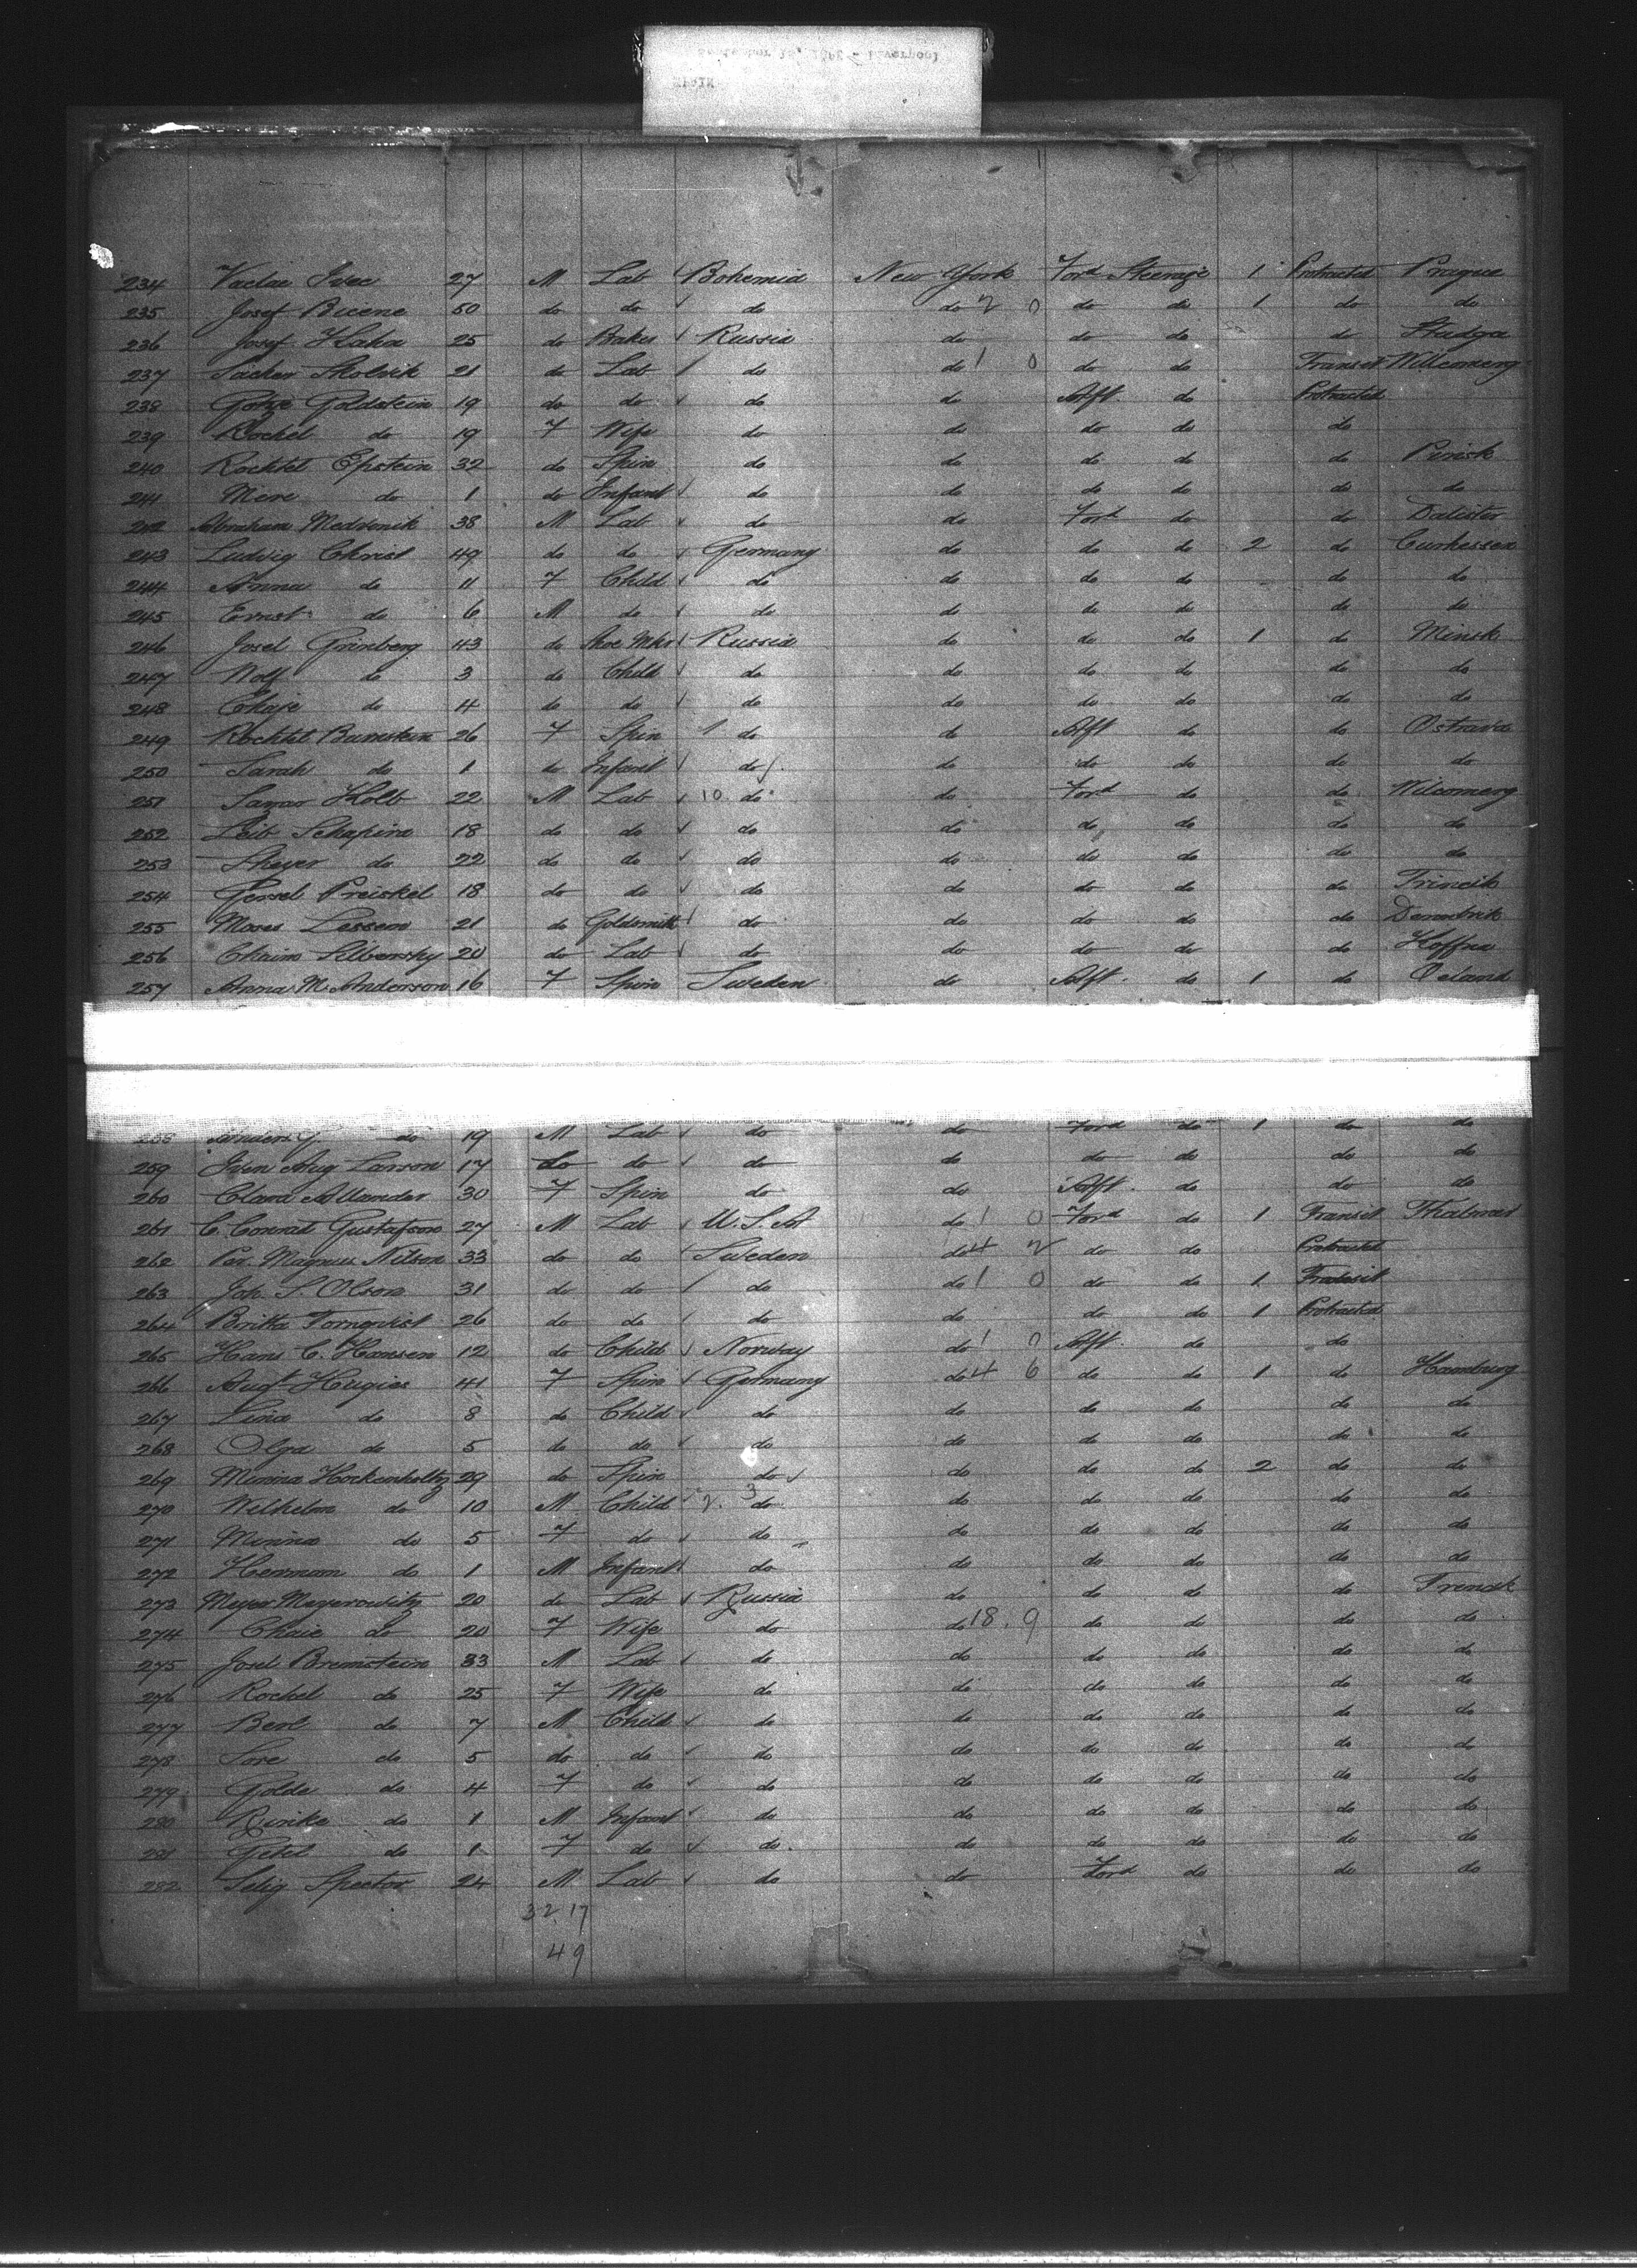 234 Vaclav Svec 27 M Lab Bohemia New York Ford Steerage 1 Protracted Prague
235 Josef 50 do do do do 2 0 do do 1 do do
236 Josef Kahn 25 do Baker Russia do do do do
237 21 do Lab do do 1 0 do do Transit Wilcomerg
238 Goldstein 19 do do do do Aft do Protracted
239 Rochel do 19 F Wife do do do do do
240 Rochtel Epstein 32 do Spin do do do do do Pinsk
241 Mere do 1 do Infant do do do do do do
242 Abraham Mednik 38 M Lab do do Ford do do
243 Ludwig Christ 49 do do Germany do do do 2 do Curhessen
244 Anna do 11 F Child do do do do do do
245 Ernst do 6 M do do do do do do do
246 Josel Grinberg 43 do Shoe Mkr Russia do do do 1 do Minsk
247 Wolf do 3 do Child do do do do do do
248 Chaje do 4 do do do do do do do do
249 Rochtel 26 F Spin 1 do do Aft do do Ostrava
250 Sarah do 1 do Infant do do do do do do
251 Kolb 22 M Lab 10 do do Ford do do Wilcomerg
252 Leib Schapira 18 do do do do do do do do
253 do 22 do do do do do do do do
254 Gersel Preiskel 18 do do do do do do do
255 Moses Lessem 21 do Goldsmith do do do do do
256 Chaim Silbersky 20 do Lab do do do do do Hoffna
257 Anna M. Anderson 16 F Spin Sweden do Aft do 1 do Oeland
258 Anders G. do 19 M Lab do do Ford do 1 do do
259 Sven Aug Larson 17 do do do do do do do do
260 Clara 30 F Spin do do Aft do do do
261 C. Conrad Gustafson 27 M Lab U.S.A do 1 0 Ford do 1 Transit
262 Per. Magnus Nilson 33 do do Sweden do 4 2 do do Protracted
263 Joh. S. Olson 31 do do do do 1 0 do do 1 Transit
264 Britta Tornqvist 26 do do do do do do 1 Protracted
265 Hans C. Hansen 12 do Child Norway do 1 0 Aft do do
266 Augt Hugies 41 F Spin Germany do 4 6 do do 1 do Hamburg
267 Lina do 8 do Child do do do do do do
268 Olga do 5 do do do do do do do do
269 Minna Hockenholtz 29 do Spin do do do do 2 do do
270 Wilhelm do 10 M Child 2. 3 do do do do do do
271 Minna do 5 F do do do do do do do
272 Hermann do 1 M Infant do do do do do do
273 Meyer Meyerowitz 20 do Lab Russia do do do do
274 Chaie do 20 F Wife do do 18. 9 do do do do
275 Josel Bremstein 33 M Lab do do do do do do
276 Rochel do 25 F Wife do do do do do do
277 Berl do 7 M Child do do do do do do
278 Sore do 5 do do do do do do do do
279 Golde do 4 F do do do do do do do
280 Rinke do 1 M Infant do do do do do do
281 Gitel do 1 F do do do do do do do
282 Selig Spector 24 M Lab do do Ford do do do
32 17
49